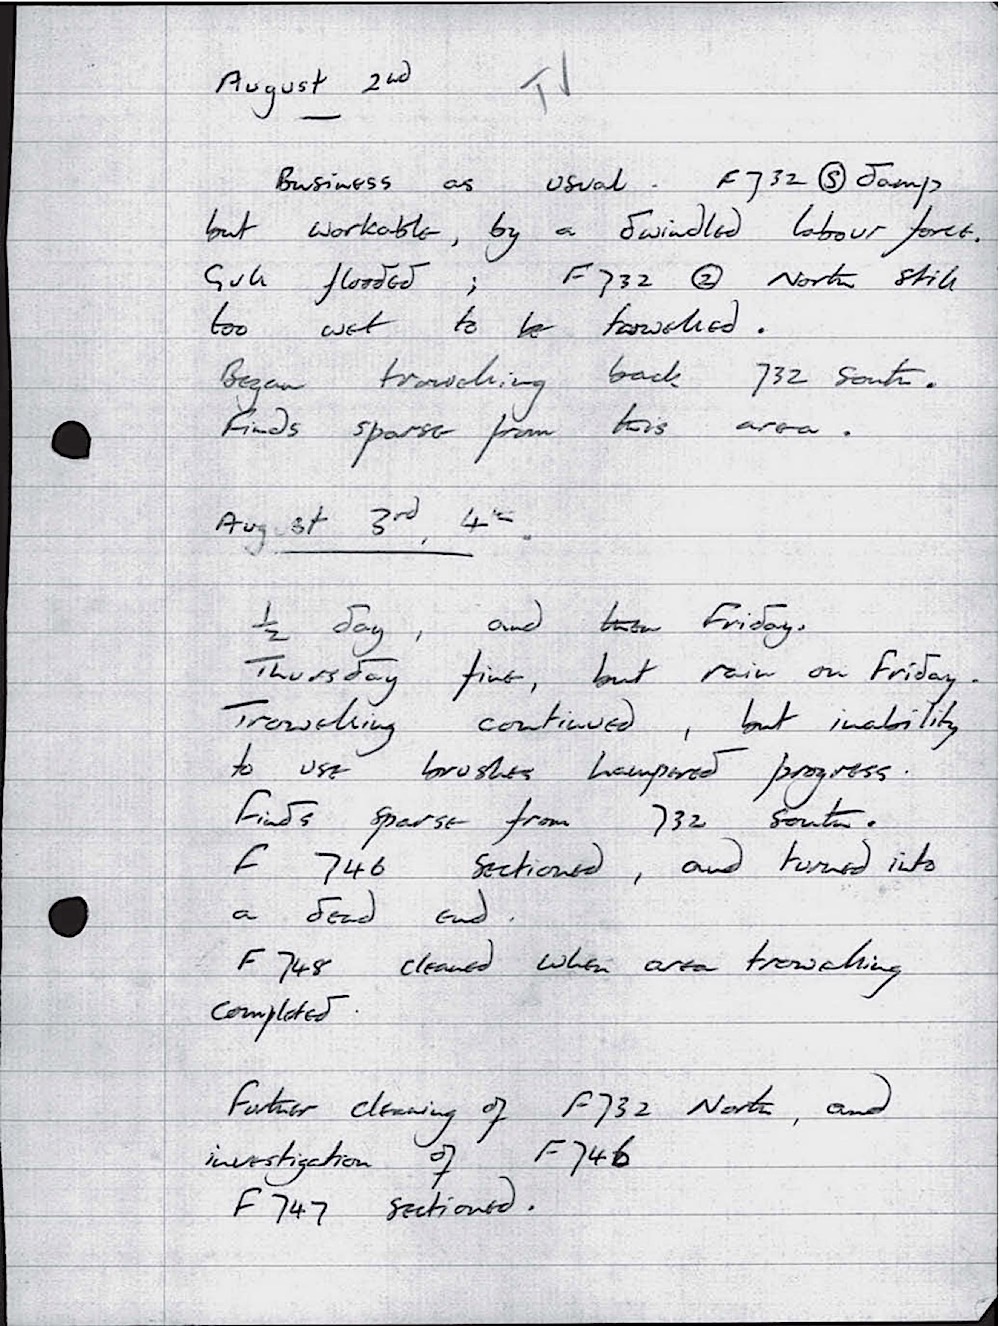 August 2nd
Business as usual. F732 Ⓢ damp
but workable, by a dwindled labour force.
flooded; F732 ② North still
too wet to be trowelled.
Began trowelling back 732 South.
Finds sparse from this area.
August 3rd, 4th.
½ day, and then Friday.
Thursday fine, but rain on Friday.
Trowelling continued, but inability
to use brushes hampered progress.
Finds sparse from 732 South.
F 746 sectioned, and turned into
a dead end.
F 748 cleaned when area trowelling
completed.
Further cleaning of F732 North, and
investigation of F746
F 747 sectioned.